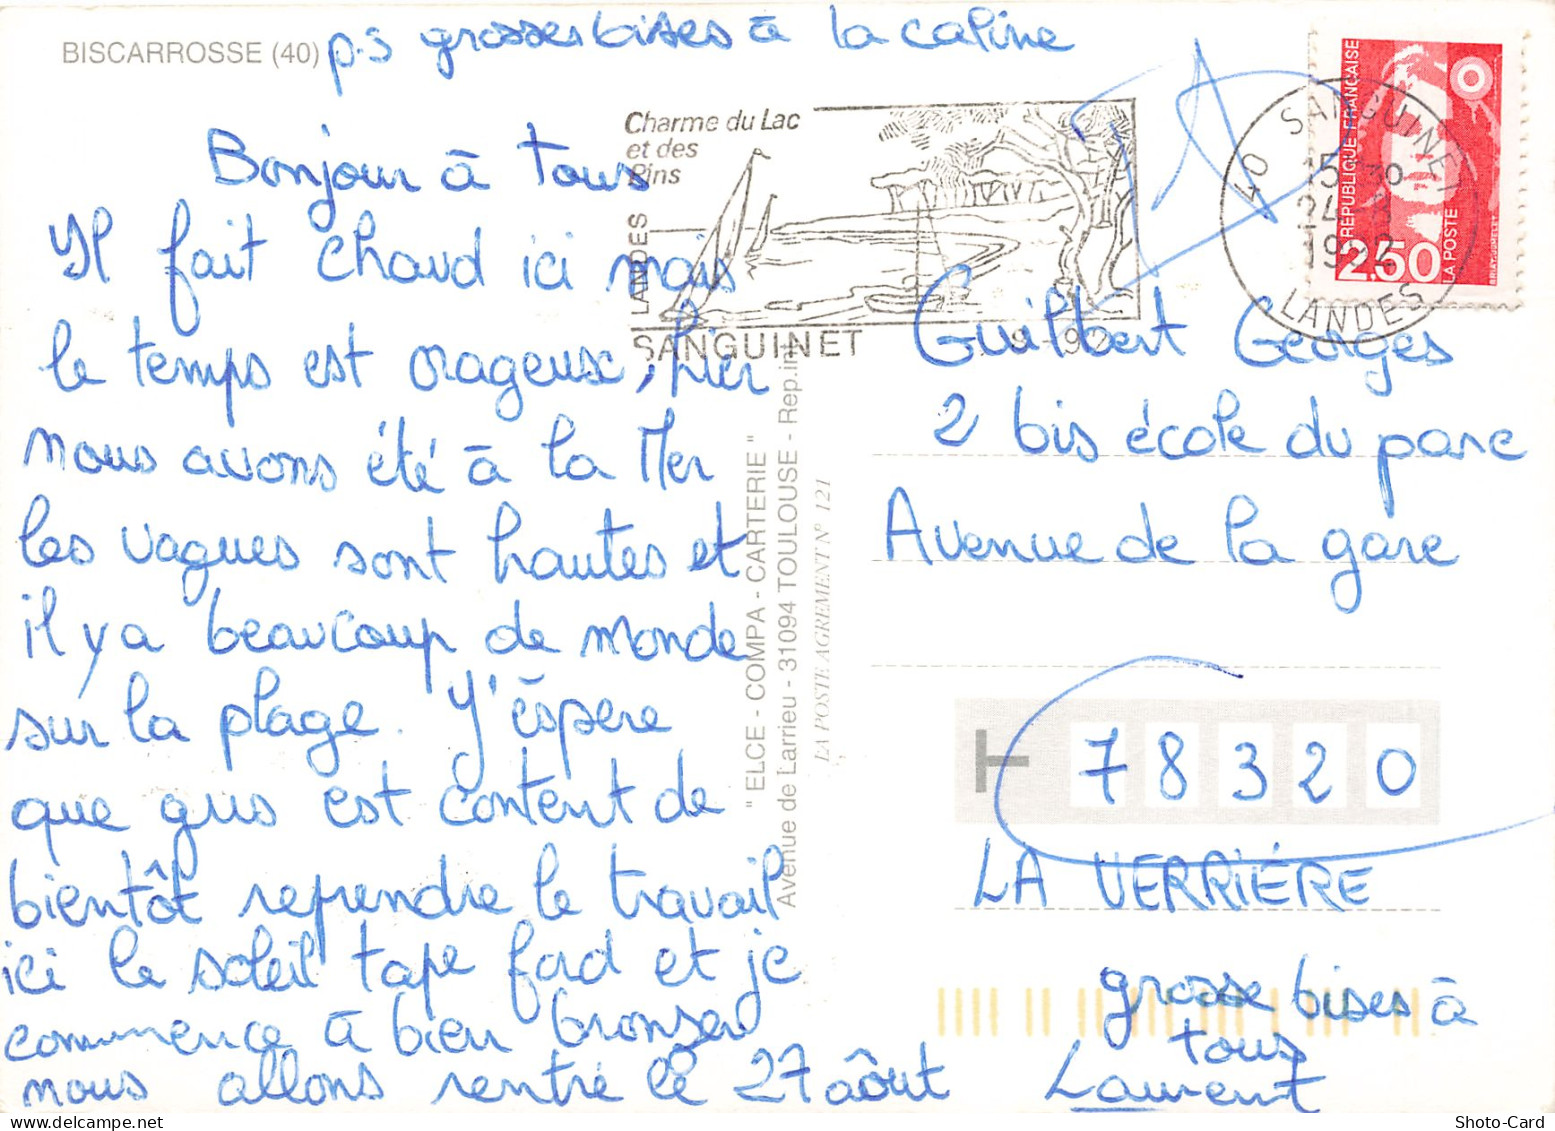 BISCARROSSE (40)
p.s grosses bises à la caline
Bonjour à tous
Il fait chaud ici mais
le temps est orageux, hier
nous avons été à la Mer
les vagues sont hautes et
il y a beaucoup de monde
sur la plage. J'éspère
que gus est content de
bientôt reprendre le travail
ici le soleil tape ford et je
commence à bien bronzer
nous allons rentré le 27 aôut
Charme du Lac
et des
Pins
LANDES
SANGUINET
40 SANGUINET
15 30
1992
LANDES
REPUBLIQUE FRANÇAISE
2.50
LA POSTE
" ELCE - COMPA - CARTERIE "
Avenue de Larrieu - 31094 TOULOUSE - Rep.int
LA POSTE AGREMENT N° 121
Guilbert Georges
2 bis école du parc
Avenue de la gare
78320
LA VERRIÉRE
grosse bises à
tous
Laurent
Shoto-Card